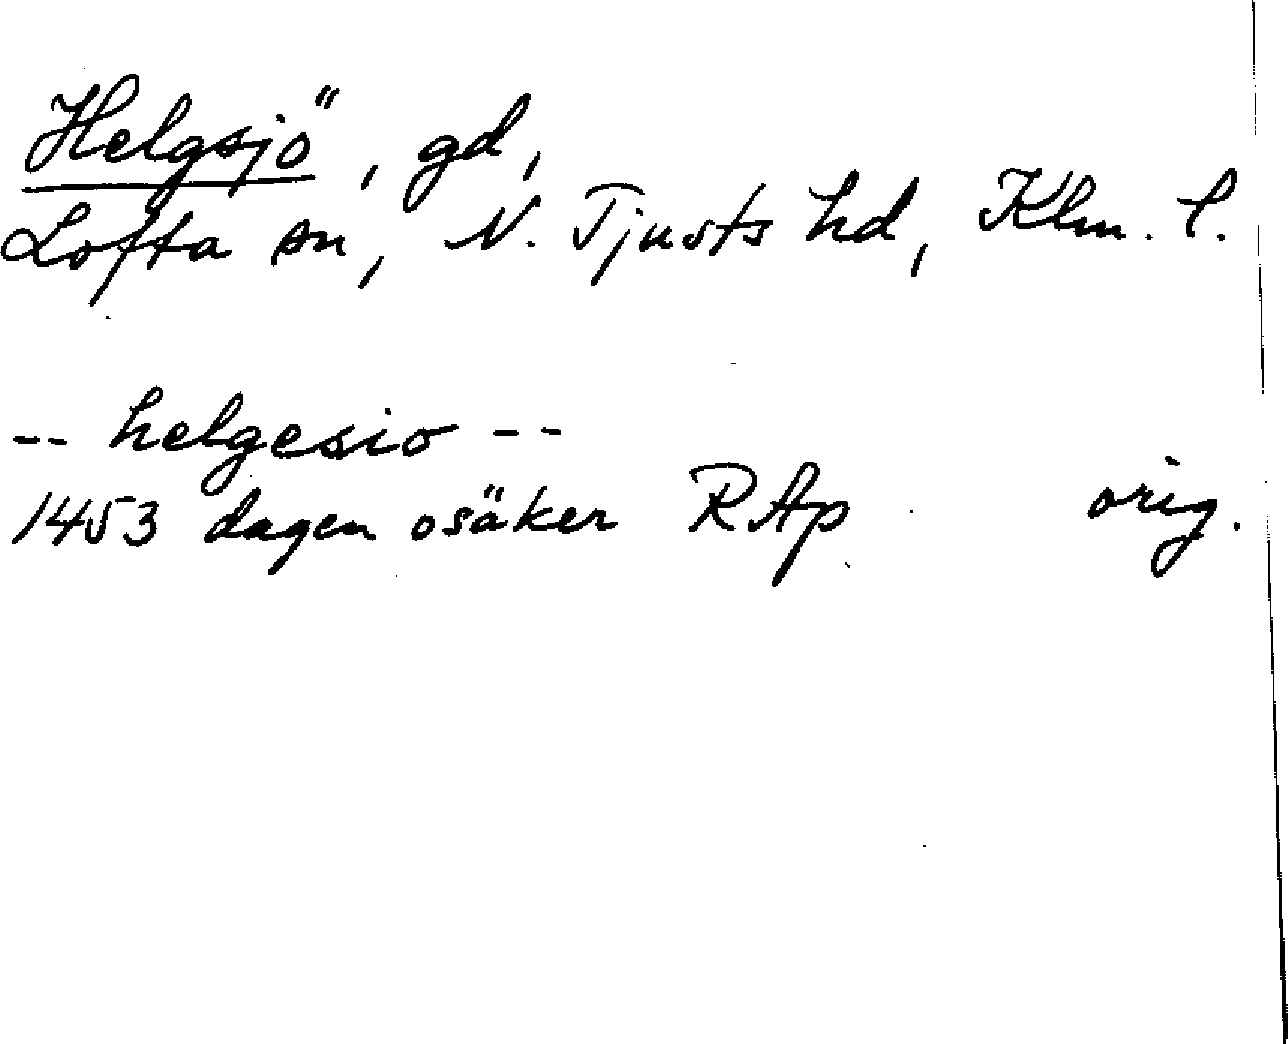 Helgsjö, gd,
Lofta sn, N. Tjusts hd, Klm. l.
-- helgesio --
1453 dagen osäker RAp orig.